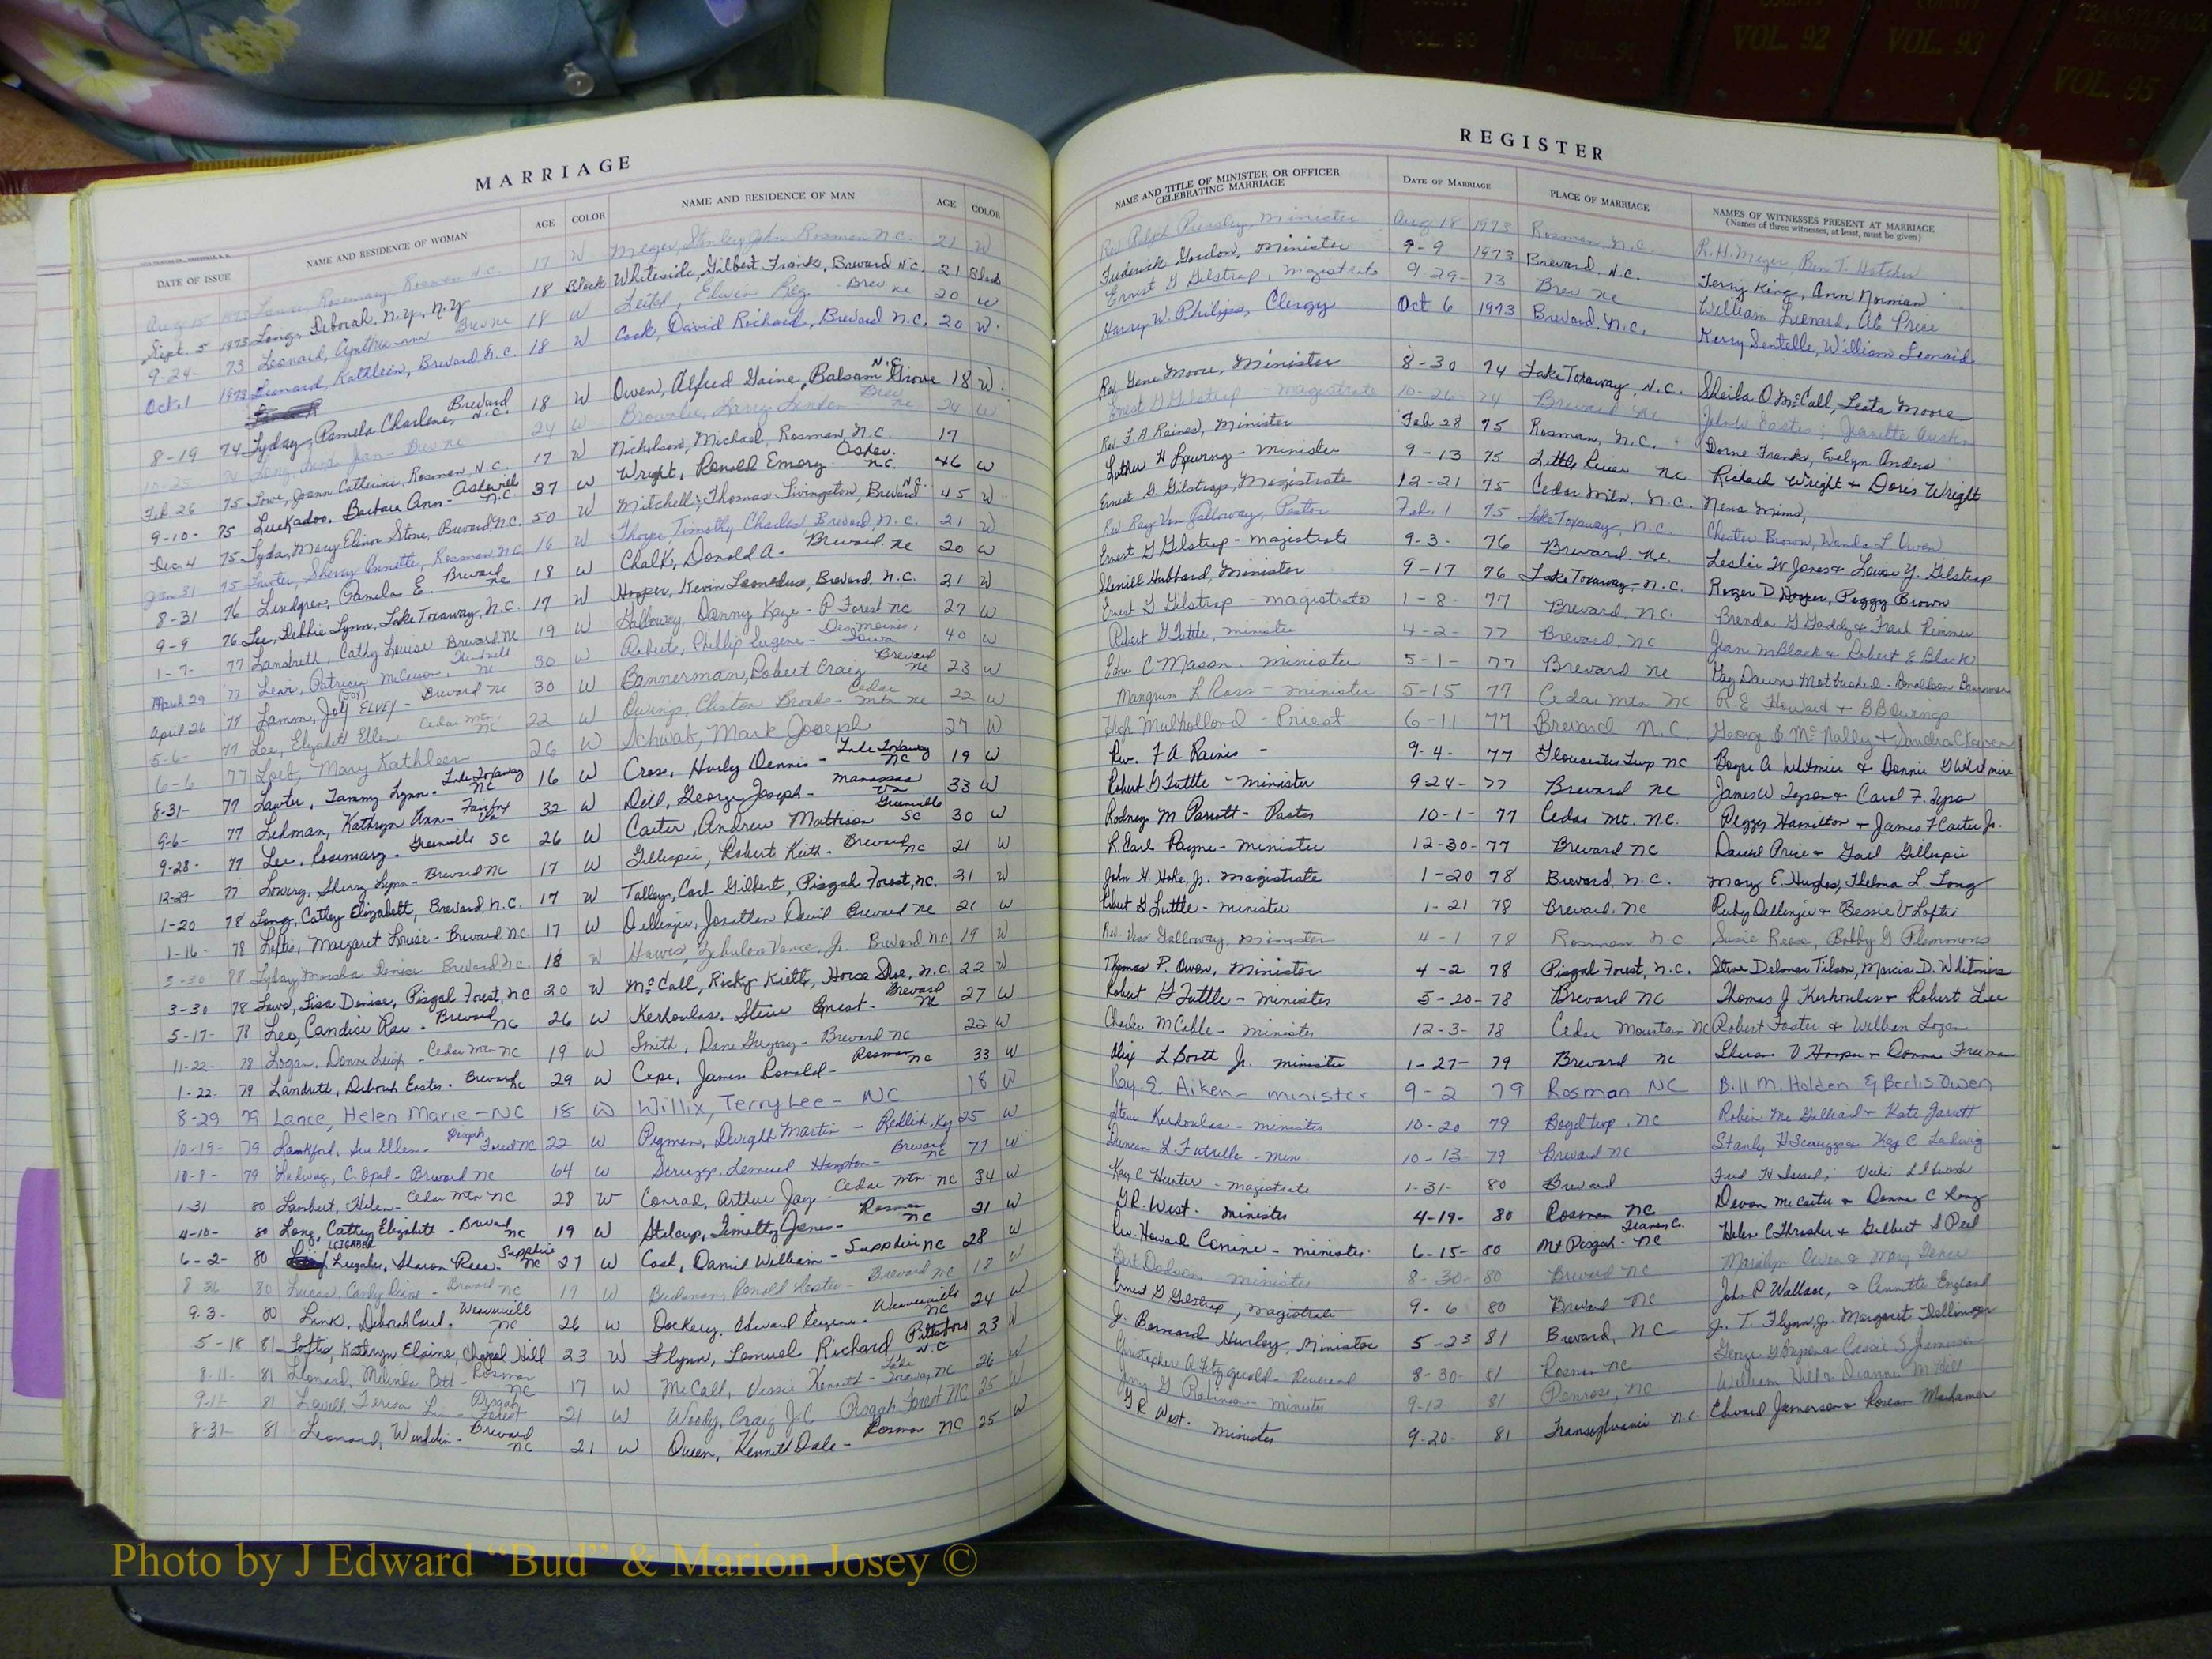 COUNTY
VOL. 90
COUNTY
VOL. 91
COUNTY
VOL. 92
COUNTY
VOL. 93
TRANSYLVANIA
COUNTY
VOL. 95
MARRIAGE
DATE OF ISSUE NAME AND RESIDENCE OF WOMAN AGE COLOR NAME AND RESIDENCE OF MAN AGE COLOR
Aug 15 1973 Rosemary, Rosman N.C. 17 W Meyer, Stanley John Rosman N.C. 21 W
Sept. 5 1973 Long, Deborah. N.Y., N.Y. 18 Black Whiteside, Gilbert Frank, Brevard N.C. 21 Black
9-24- 73 Leonard, Cynthia Ann Brev nc 18 W Edwin Brev nc 20 W
Oct. 1 1973 Leonard, Kathleen, Brevard, N.C. 18 W Cook, David Richard, Brevard N.C. 20 W.
8-19 74 Lyday, Pamela Charlene, Brevard N.C. 18 W Owen, Alfred Gaine, Balsam Grove N.C. 18 W.
10-25 Long, Linda Jan - Brev nc 24 W Brownlee, Larry Brev nc 24 W
Feb 26 75 Lowe, Joann Catherine, Rosman N.C. 17 W Nicholson, Michael, Rosman, N.C. 17
9-10- 75 Luckadoo, Barbara Ann - Asheville N.C. 37 W Wright, Ronald Emory Ashev. N.C. 46 W
Dec. 4 75 Lyda, Mary Elinor Stone, Brevard N.C. 50 W Mitchell, Thomas Livingston, Brevard N.C. 45 W
Jan 31 75 Sherry Annette, Rosman, NC 16 W Timothy Charles Brevard, N.C. 21 W
8-31 76 Lindgren, Pamela E. Brevard nc 18 W Chalk, Donald A. - Brevard. nc 20 W
9-9 76 Lee, Debbie Lynn, Lake Toxaway, N.C. 17 W Hooper, Kevin Leonedus, Brevard, N.C. 21 W
1-7- 77 Landreth, Cathy Louise Brevard nc 19 W Galloway, Danny Kaye - P Forest nc 27 W
March 29 77 Patricia nc 30 W Roberts, Phillip Eugene - Des Moines, Iowa 40 W
April 26 77 Lamm, Joy (JOY) ELVEY - Brevard nc 30 W Bannerman, Robert Craig Brevard nc 23 W
5-6- 77 Lee, Elizabeth Ellen Cedar Mtn NC 22 W Owings, Clinton Brooks - Cedar Mtn nc 22 W
6-6 77 Loeb, Mary Kathleen 26 W Schwab, Mark Joseph 27 W
8-31- 77 Lawter, Tammy Lynn - Lake Toxaway NC 16 W Crose, Hurly Dennis - Lake Toxaway NC 19 W
9-6- 77 Lehman, Kathryn Ann - Fairfax Va 32 W Dill, George Joseph - Manassas Va 33 W
9-28- 77 Lee, Rosemary - Greenville SC 26 W Carter, Andrew Mattison Greenville SC 30 W
12-29- 77 Lowery, Sherry Lynn - Brevard NC 17 W Gillespie, Robert Keith - Brevard NC 21 W
1-20 78 Long, Cathey Elizabeth, Brevard, N.C. 17 W Talley, Carl Gilbert, Pisgah Forest, NC. 21 W
1-16- 78 Loftis, Margaret Louise - Brevard NC 17 W Dellinger, Jonathan David Brevard nc 21 W
3-30 78 Lyday, Marsha Denise Brevard NC. 18 W Hawes, Zebulon Vance, Jr. Brevard NC 19 W
3-30 78 Lisa Denise, Pisgal Forest, NC 20 W McCall, Ricky Keith, Horse Shoe, N.C. 22 W
5-17- 78 Lee, Candice Rae - Brevard NC 26 W Kerhoulas, Steve Ernest - Brevard NC 27 W
11-22- 78 Logan, Donna Leigh - Cedar Mtn NC 19 W Smith, Dane Gregory - Brevard NC 22 W
1-22- 79 Landreth, Deborah Easter - Brevard NC 29 W Cope, James Ronald - Rosman NC 33 W
8-29 79 Lance, Helen Marie - NC 18 W Willix, Terry Lee - NC 18 W
10-19- 79 Lankford, Sue Ellen - Pisgah Forest NC 22 W Pigman, Dwight Martin - Redlich, Ky 25 W
10-8- 79 Ladwig, C. Opal - Brevard NC 64 W Scruggs, Lemuel Hampton - Brevard NC 77 W
1-31 80 Lambert, Helen - Cedar Mtn NC 28 W Conrad, Arthur Jay - Cedar Mtn NC 34 W
4-10- 80 Long, Cathey Elizabeth - Brevard NC 19 W Stilcup, Timothy James - Rosman NC 21 W
6-2- 80 Sharon Rose - Sapphire NC 27 W Cash, Daniel William - Sapphire NC 28 W
8 26 80 Lucas, Candy Diane - Brevard NC 17 W Buchanan, Ronald Lester - Brevard NC 18 W
9-3- 80 Link, Deborah Carol - Weaverville NC 26 W Dockery, Edward Eugene - Weaverville NC 24 W
5-18 81 Loftis, Kathryn Elaine, Chapel Hill 23 W Flynn, Samuel Richard Pittsboro N.C 23 W
8-11- 81 Leonard, Melinda Beth - Rosman NC 17 W McCall, Vessie Kenneth - Lake Toxaway NC 26 W
9-11- 81 Lowell Teresa Pisgah Forest 21 W Woody, Craig J.C Pisgah Forest NC 25 W
8-31- 81 Leonard, Brevard NC 21 W Queen, Kenneth Dale - Rosman NC 25 W
REGISTER
NAME AND TITLE OF MINISTER OR OFFICER CELEBRATING MARRIAGE DATE OF MARRIAGE PLACE OF MARRIAGE NAMES OF WITNESSES PRESENT AT MARRIAGE (Names of three witnesses, at least, must be given)
Rev. Ralph Pressley, Minister Aug 18 1973 Rosman, N.C. R.H. Meyer, Ben T. Hatcher
Frederick Gordon, Minister 9-9 1973 Brevard, N.C. Terry King, Ann Norman
Ernest G Gilstrap, Magistrate 9-29- 73 Brev nc William Leonard, AC Price
Harry W. Philips, Clergy Oct 6 1973 Brevard, N.C. Kerry Dentelle, William Leonard
Rev. Gene Moore, Minister 8-30 74 Lake Toxaway, N.C. Sheila O McCall, Leata Moore
Ernest G Gilstrap - Magistrate 10-26-74 Brevard nc
Rev. F.A Raines, Minister Feb 28 75 Rosman, N.C. Dorne Franks, Evelyn Anders
Luther H - Minister 9-13 75 Little River NC Richard Wright + Doris Wright
Ernest G Gilstrap, Magistrate 12-21 75 Cedar Mtn. N.C. Nena Mims,
Rev. Ray Von Galloway, Pastor Feb. 1 75 Lake Toxaway, N.C. Chester Brown, Wanda L Owen
Ernest G Gilstrap - Magistrate 9-3- 76 Brevard. NC. Leslie W Jones + Louise Y. Gilstrap
Sherrill Hubbard, Minister 9-17 76 Lake Toxaway, N.C. Roger D Peggy Brown
Ernest G Gilstrap - Magistrate 1-8- 77 Brevard, NC. Brenda G Gaddy + Frank Remmer
Robert G Tuttle, Minister 4-2- 77 Brevard, NC Jean M Black + Robert E Black
Edner C Mason. Minister 5-1- 77 Brevard NC
Mangrum L Ross - Minister 5-15 77 Cedar Mtn NC R.E Howard + BB Owings
Hugh Mulholland - Priest 6-11 77 Brevard N.C. George E. McNally +
Rev. F A Raines - 9-4- 77 Gloucester Twp NC Boyce A Whitmire & Donnie G Whitmire
Robert G Tuttle - Minister 9-24- 77 Brevard NC James W Tyson + Carol F. Tyson
Rodney M Parrott - Pastor 10-1- 77 Cedar Mt. NC. Peggy Hamilton + James F Carter Jr.
R. Earl Payne - Minister 12-30- 77 Brevard NC David Price + Gail Gillespie
John H. Hoke, Jr. Magistrate 1-20 78 Brevard, N.C. Mary E. Hughes, Thelma L. Long
Robert G Tuttle - Minister 1-21 78 Brevard, NC Ruby Dellinger + Bessie V Loftis
Rev. Galloway, Minister 4-1 78 Rosman N.C Susie Reese, Bobby G Plemmons
Thomas P. Owen, Minister 4-2 78 Pisgal Forest, N.C. Steve Delmar Tilson, Marcia D. Whitmire
Robert G Tuttle - Minister 5-20- 78 Brevard NC Thomas J Kerhoulas + Robert Lee
Charles M Cable - Minister 12-3- 78 Cedar Mountain NC Robert Foster & William Logan
Alex L Booth Jr. Minister 1-27- 79 Brevard NC V Hooper + Donna Freeman
Ray E. Aiken - Minister 9-2 79 Rosman NC Bill M. Holden & Berlis Owen
Steve Kerhoulas - Minister 10-20 79 Boyd twp. NC Robin + Kate Garrett
Duncan L Futrelle - Min 10-13- 79 Brevard NC Stanly H Scruggs + Kay C Ladwig
Kay C Hunter - Magistrate 1-31- 80 Brevard Fred
G.R. West - Minister 4-19- 80 Rosman NC Devon McCarter + Donna C Long
Rev. Howard Conine - Minister. 6-15- 80 Mt Pisgah - NC Helen C Thrasher + Gilbert S Peel
Dodson Minister 8-30- 80 Brevard NC Marilyn Owen & Mary
Ernest G Gilstrap, Magistrate 9-6 80 Brevard NC John P Wallace, & Annette England
J. Bernard Hurley, Minister 5-23 81 Brevard, NC J. T. Flynn, Jr. Margaret Dellinger
Christopher A Fitzgerald - Reverend 8-30- 81 Rosman NC
Jerry G Robinson - Minister 9-12 81 Penrose, NC William Hill &
G R West. Minister 9-20- 81 Transylvania N.C. Edward Jamerson +
Photo by J Edward “Bud” & Marion Josey ©